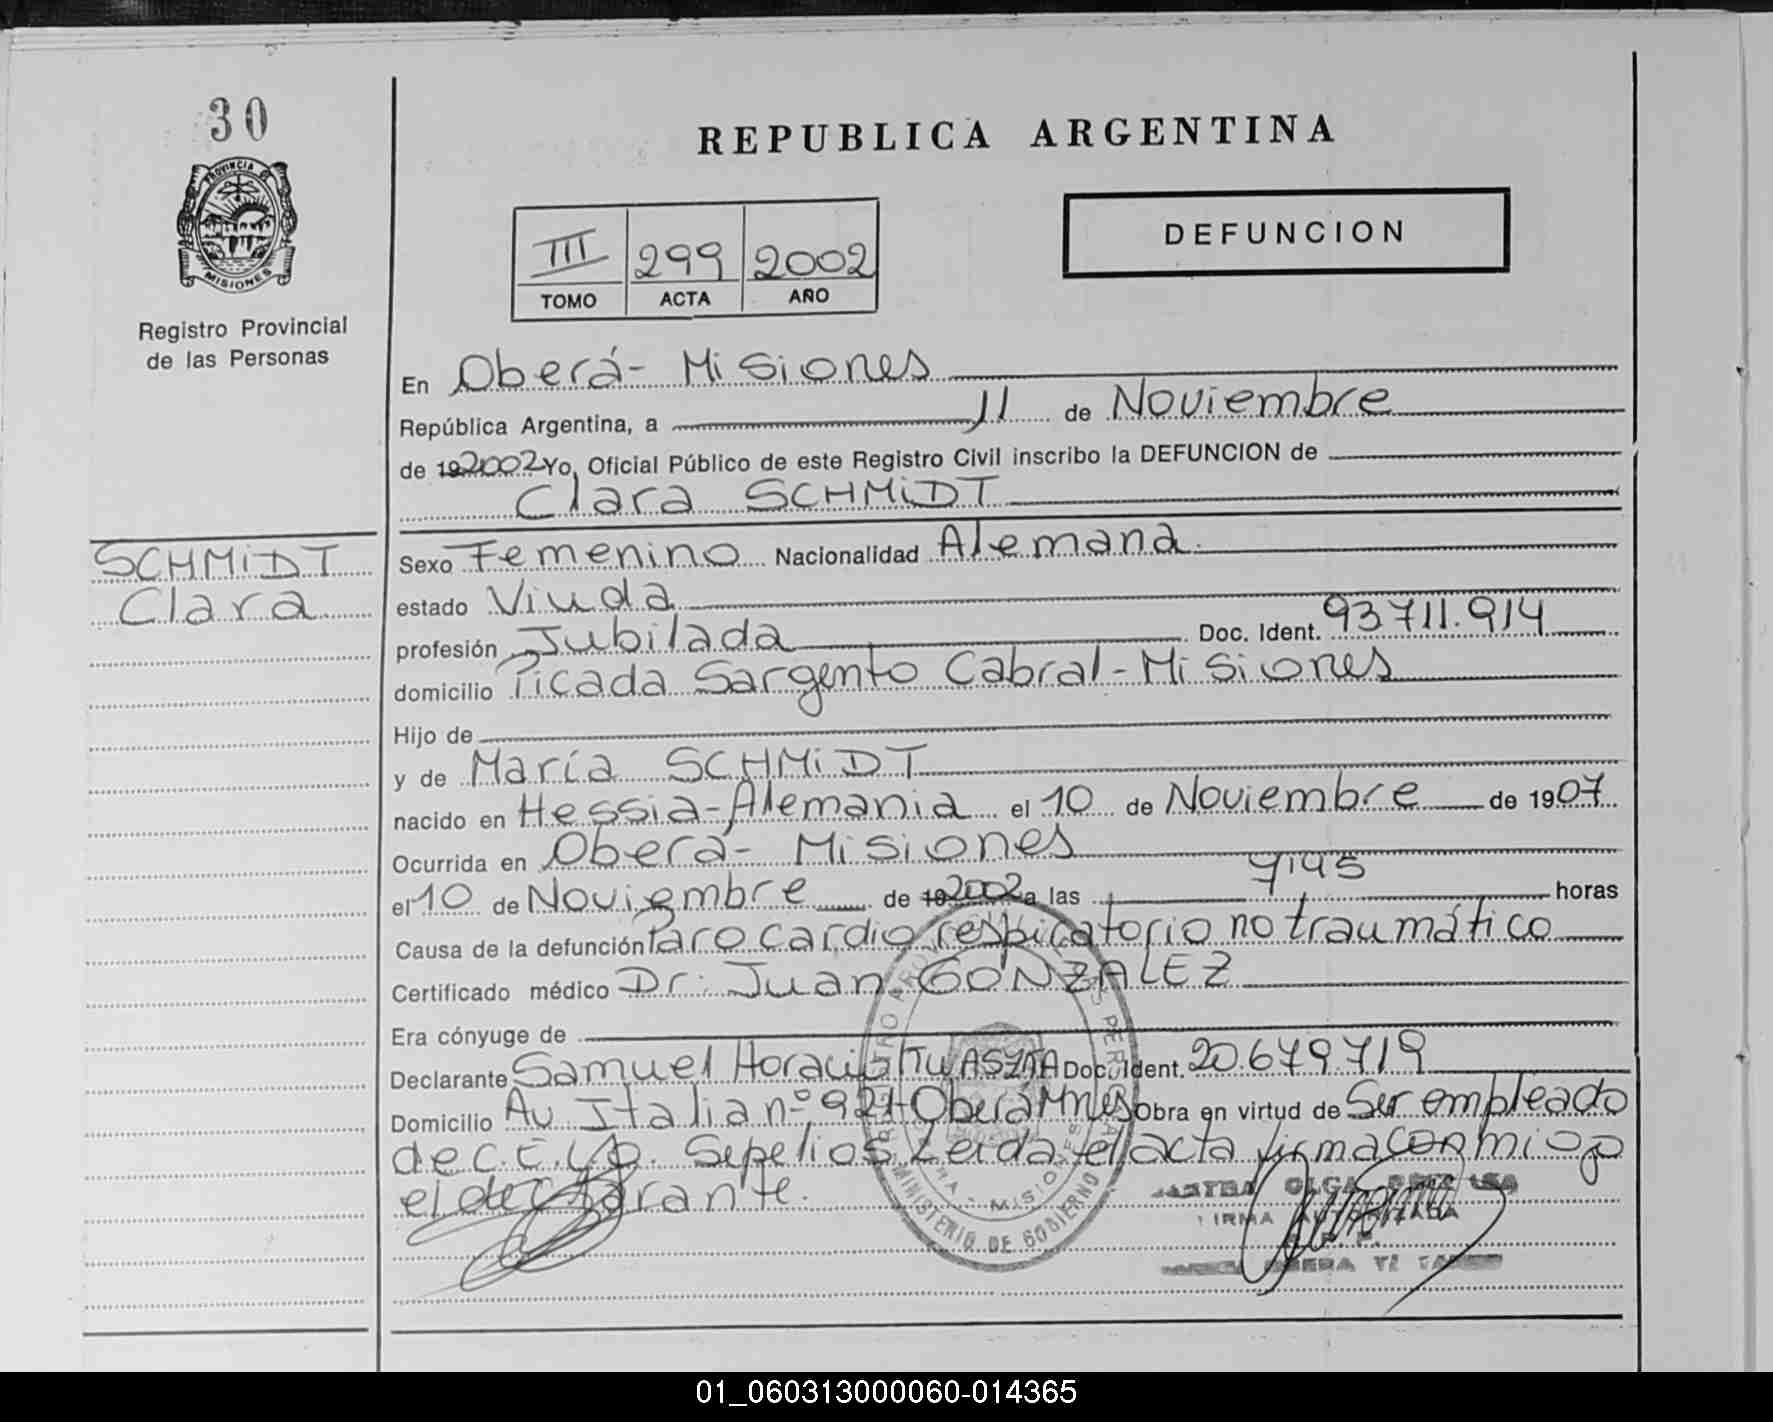 30
PROVINCIA DE
MISIONES
Registro Provincial
de las Personas
REPUBLICA ARGENTINA
III 299 2002
TOMO ACTA AÑO
DEFUNCION
En Oberá - Misiones
República Argentina, a 11 de Noviembre
de 192002 Yo, Oficial Público de este Registro Civil inscribo la DEFUNCION de
Clara SCHMIDT
SCHMIDT
Clara
Sexo Femenino Nacionalidad Alemana.
estado Viuda
profesión Jubilada Doc. Ident. 93711.914
domicilio Picada Sargento Cabral - Misiones
Hijo de
y de María SCHMIDT
nacido en Hessia - Alemania el 10 de Noviembre de 1907
Ocurrida en Oberá - Misiones
el 10 de Noviembre de 192002 a las 7:45 horas
Causa de la defunción Paro cardio respiratorio no traumático
Certificado médico Dr. Juan GONZALEZ
Era cónyuge de
Declarante Samuel Horacio Doc. Ident. 20.679.719
Domicilio Av. Italia nº 921 - Oberá Mnes Obra en virtud de Ser empleado
de C.E.L.O. Sepelios Leida el acta firma conmigo
el declarante.
MINISTERIO DE GOBIERNO
MISIONES
OLGA
FIRMA AUTORIZADA
01_060313000060-014365